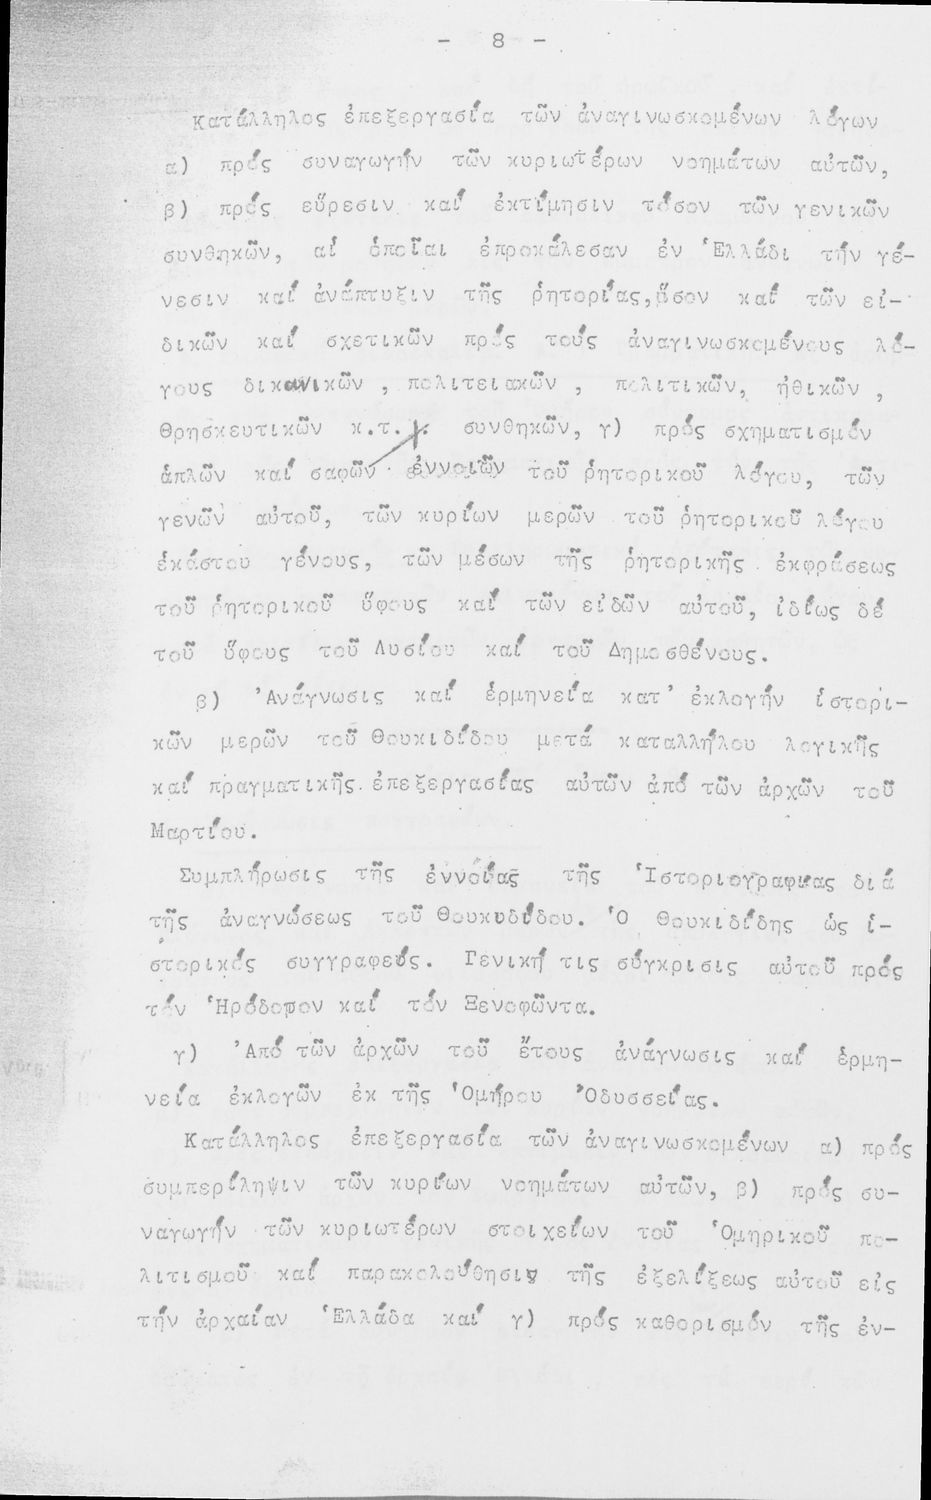 - 8 -
Κατάλληλος ἐπεξεργασία τῶν ἀναγινωσκομένων λόγων
α) πρός συναγωγήν τῶν κυριωτέρων νοημάτων αὐτῶν,
β) πρός εὕρεσιν καί ἐκτίμησιν τόσον τῶν γενικῶν
συνθηκῶν, αἱ ὁποῖαι ἐπροκάλεσαν ἐν Ἑλλάδι τήν γέ-
νεσιν καί ἀνάπτυξιν τῆς ῥητορίας, ὅσον καί τῶν εἰ-
δικῶν καί σχετικῶν πρός τούς ἀναγινωσκομένους λό-
γους δικανικῶν , πολιτειακῶν , πολιτικῶν, ἠθικῶν ,
θρησκευτικῶν κ.τ. συνθηκῶν, γ) πρός σχηματισμόν
ἁπλῶν καί σαφῶν ἐννοιῶν τοῦ ῥητορικοῦ λόγου, τῶν
γενῶν αὐτοῦ, τῶν κυρίων μερῶν τοῦ ῥητορικοῦ λόγου
ἑκάστου γένους, τῶν μέσων τῆς ῥητορικῆς ἐκφράσεως
τοῦ ῥητορικοῦ ὕφους καί τῶν εἰδῶν αὐτοῦ, ἰδίως δέ
τοῦ ὕφους τοῦ Λυσίου καί τοῦ Δημοσθένους.
β) Ἀνάγνωσις καί ἑρμηνεία κατ' ἐκλογήν ἱστορι-
κῶν μερῶν τοῦ Θουκιδίδου μετά καταλλήλου λογικῆς
καί πραγματικῆς ἐπεξεργασίας αὐτῶν ἀπό τῶν ἀρχῶν τοῦ
Μαρτίου.
Συμπλήρωσις τῆς ἐννοίας τῆς Ἱστοριογραφιας διά
τῆς ἀναγνώσεως τοῦ Θουκυδίδου. Ὁ Θουκιδίδης ὡς ἱ-
στορικός συγγραφεύς. Γενική τις σύγκρισις αὐτοῦ πρός
τόν Ἡρόδοτον καί τόν Ξενοφῶντα.
γ) Ἀπό τῶν ἀρχῶν τοῦ ἔτους ἀνάγνωσις καί ἑρμη-
νεία ἐκλογῶν ἐκ τῆς Ὁμήρου Ὀδυσσείας.
Κατάλληλος ἐπεξεργασία τῶν ἀναγινωσκομένων α) πρός
συμπερίληψιν τῶν κυρίων νοημάτων αὐτῶν, β) πρός συ-
ναγωγήν τῶν κυριωτέρων στοιχείων τοῦ Ὁμηρικοῦ πο-
λιτισμοῦ καί παρακολούθησις τῆς ἐξελίξεως αὐτοῦ εἰς
τήν ἀρχαίαν Ἑλλάδα καί γ) πρός καθορισμόν τῆς ἐν-